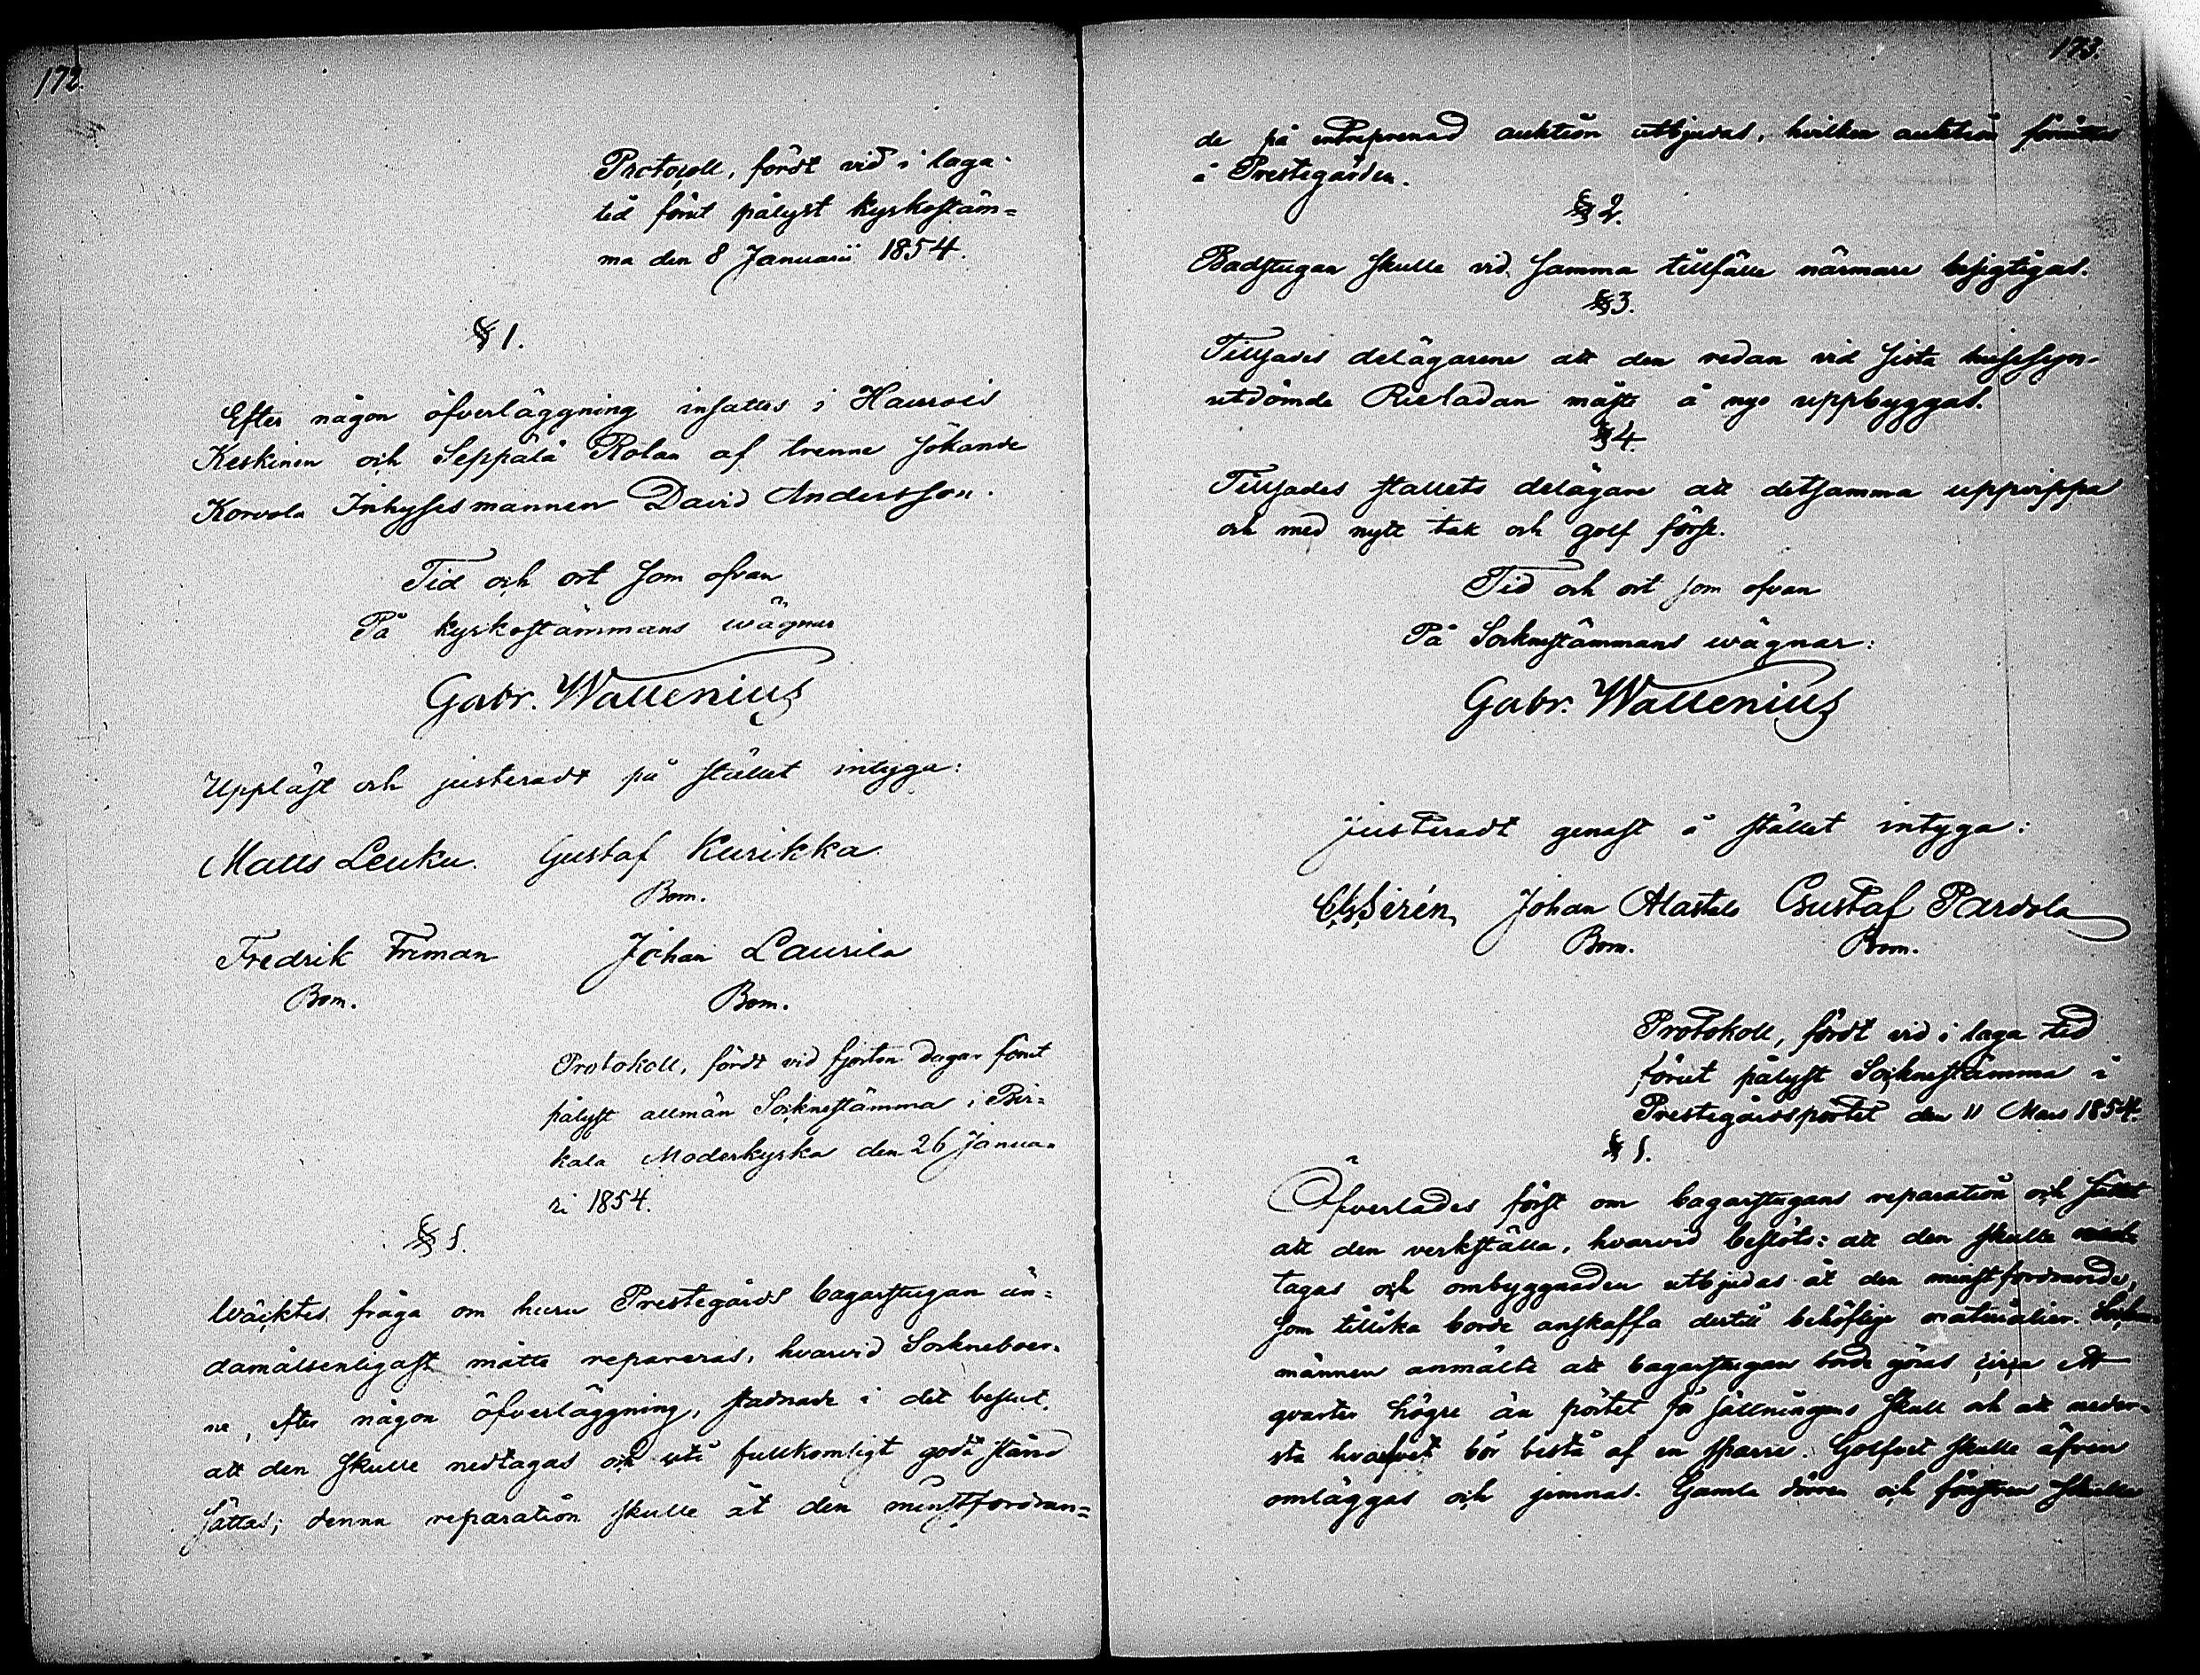 172.
Protocoll, fördt vid i laga
tid förut pålyst kyrkostäm=
ma den 8 Januarii 1854.
§ 1.
Efter någon öfverläggning insattes i Haurvis
Keskinen och Seppälä Rotan af trenne sökande
Korvola Inhysesmannen David Andersson.
Tid och ort som ofvan
På kyrkostämmans wägnar
Gabr. Wallenius
Uppläst och justeradt på stället intyga:
Matts Leuku. Gustaf Kurikka.
Bom.
Fredrik Friman Johan Laurila
Bom. Bom.
Protokoll, fördt vid fjorton dagar förut
pålyst allmän Socknestämma i Bir=
kala Moderkyrka den 26 Janua=
ri 1854.
§ 1.
Wäcktes fråga om huru Prestegårds bagarstugan än=
damålsenligast måtte repareras, hvarvid Sockneboer=
ne, efter någon öfverläggning, stadnade i det beslut,
att den skulle nedtagas och uti fullkomligt godt stånd
sättas; denna reparation skulle åt den minstfordran=
173.
de på entreprenad auktion utbjudas, hvilken auktion förrättas
i Prestegården.
§ 2.
Badstugan skulle vid samma tillfälle närmare besigtigas.
§ 3.
Tillsades delägarene att den redan vid sista husesyn
utdömde Rieladan måste å nyo uppbyggas.
§ 4.
Tillsades stallets delägare att detsamma uppvippa
och med nytt tak och golf förse.
Tid och ort som ofvan
På Socknestämmans wägnar:
Gabr. Wallenius
Justeradt genast å stället intyga:
Sirén, Johan Alastalo Gustaf Pardola
Bom. Bom.
Protokoll, fördt vid i laga tid
förut pålyst Socknestämma i
Prestegårdspörtet den 11 Mars 1854.
§ 1.
Öfverlades först om bagarstugans reparation och sättet
att den verkställa, hvarvid beslöts: att den skulle ned=
tagas och ombyggnaden utbjudas åt den minstfordrande,
som tillika borde anskaffa dertill behöflige materialier. Sockne=
männen anmälte att bagarstugan borde göras circa ett
qvarter högre än pörtet för sättningens skull och att neder=
sta hvarfvet bör bestå af en sparre. Golfvet skulle äfven
omläggas och jemnas. Gamla dörren och fönstren skulle